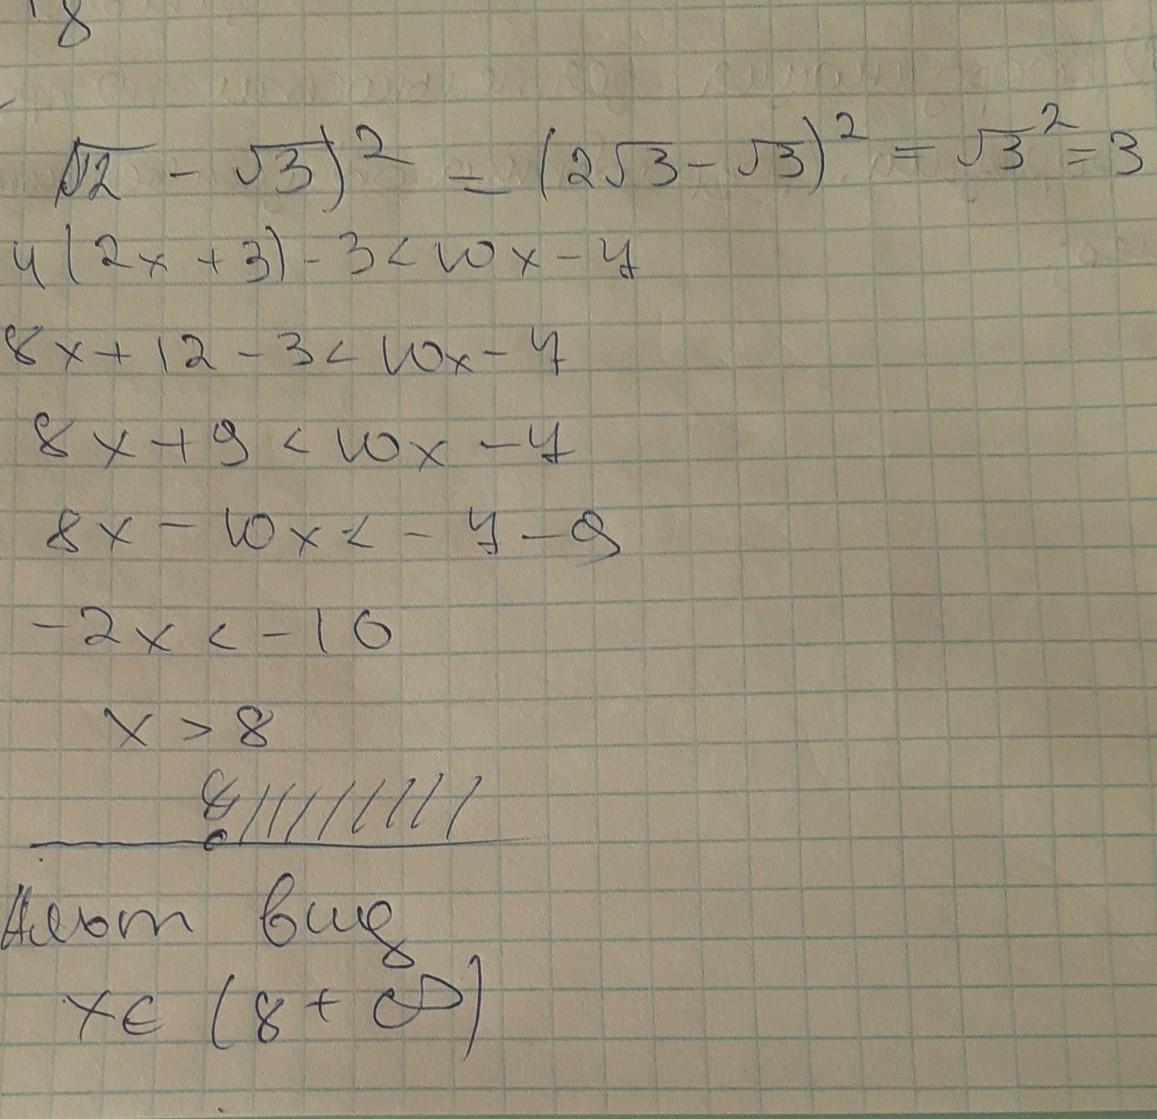 8
√12 - √3)² = (2√3 - √3)² = √3² = 3
4(2x + 3) - 3 < 10x - 7
8x + 12 - 3 < 10x - 7
8x + 9 < 10x - 7
8x - 10x < - 7 - 9
-2x < -16
x > 8
8
вид
x ∈ (8 + ∞)